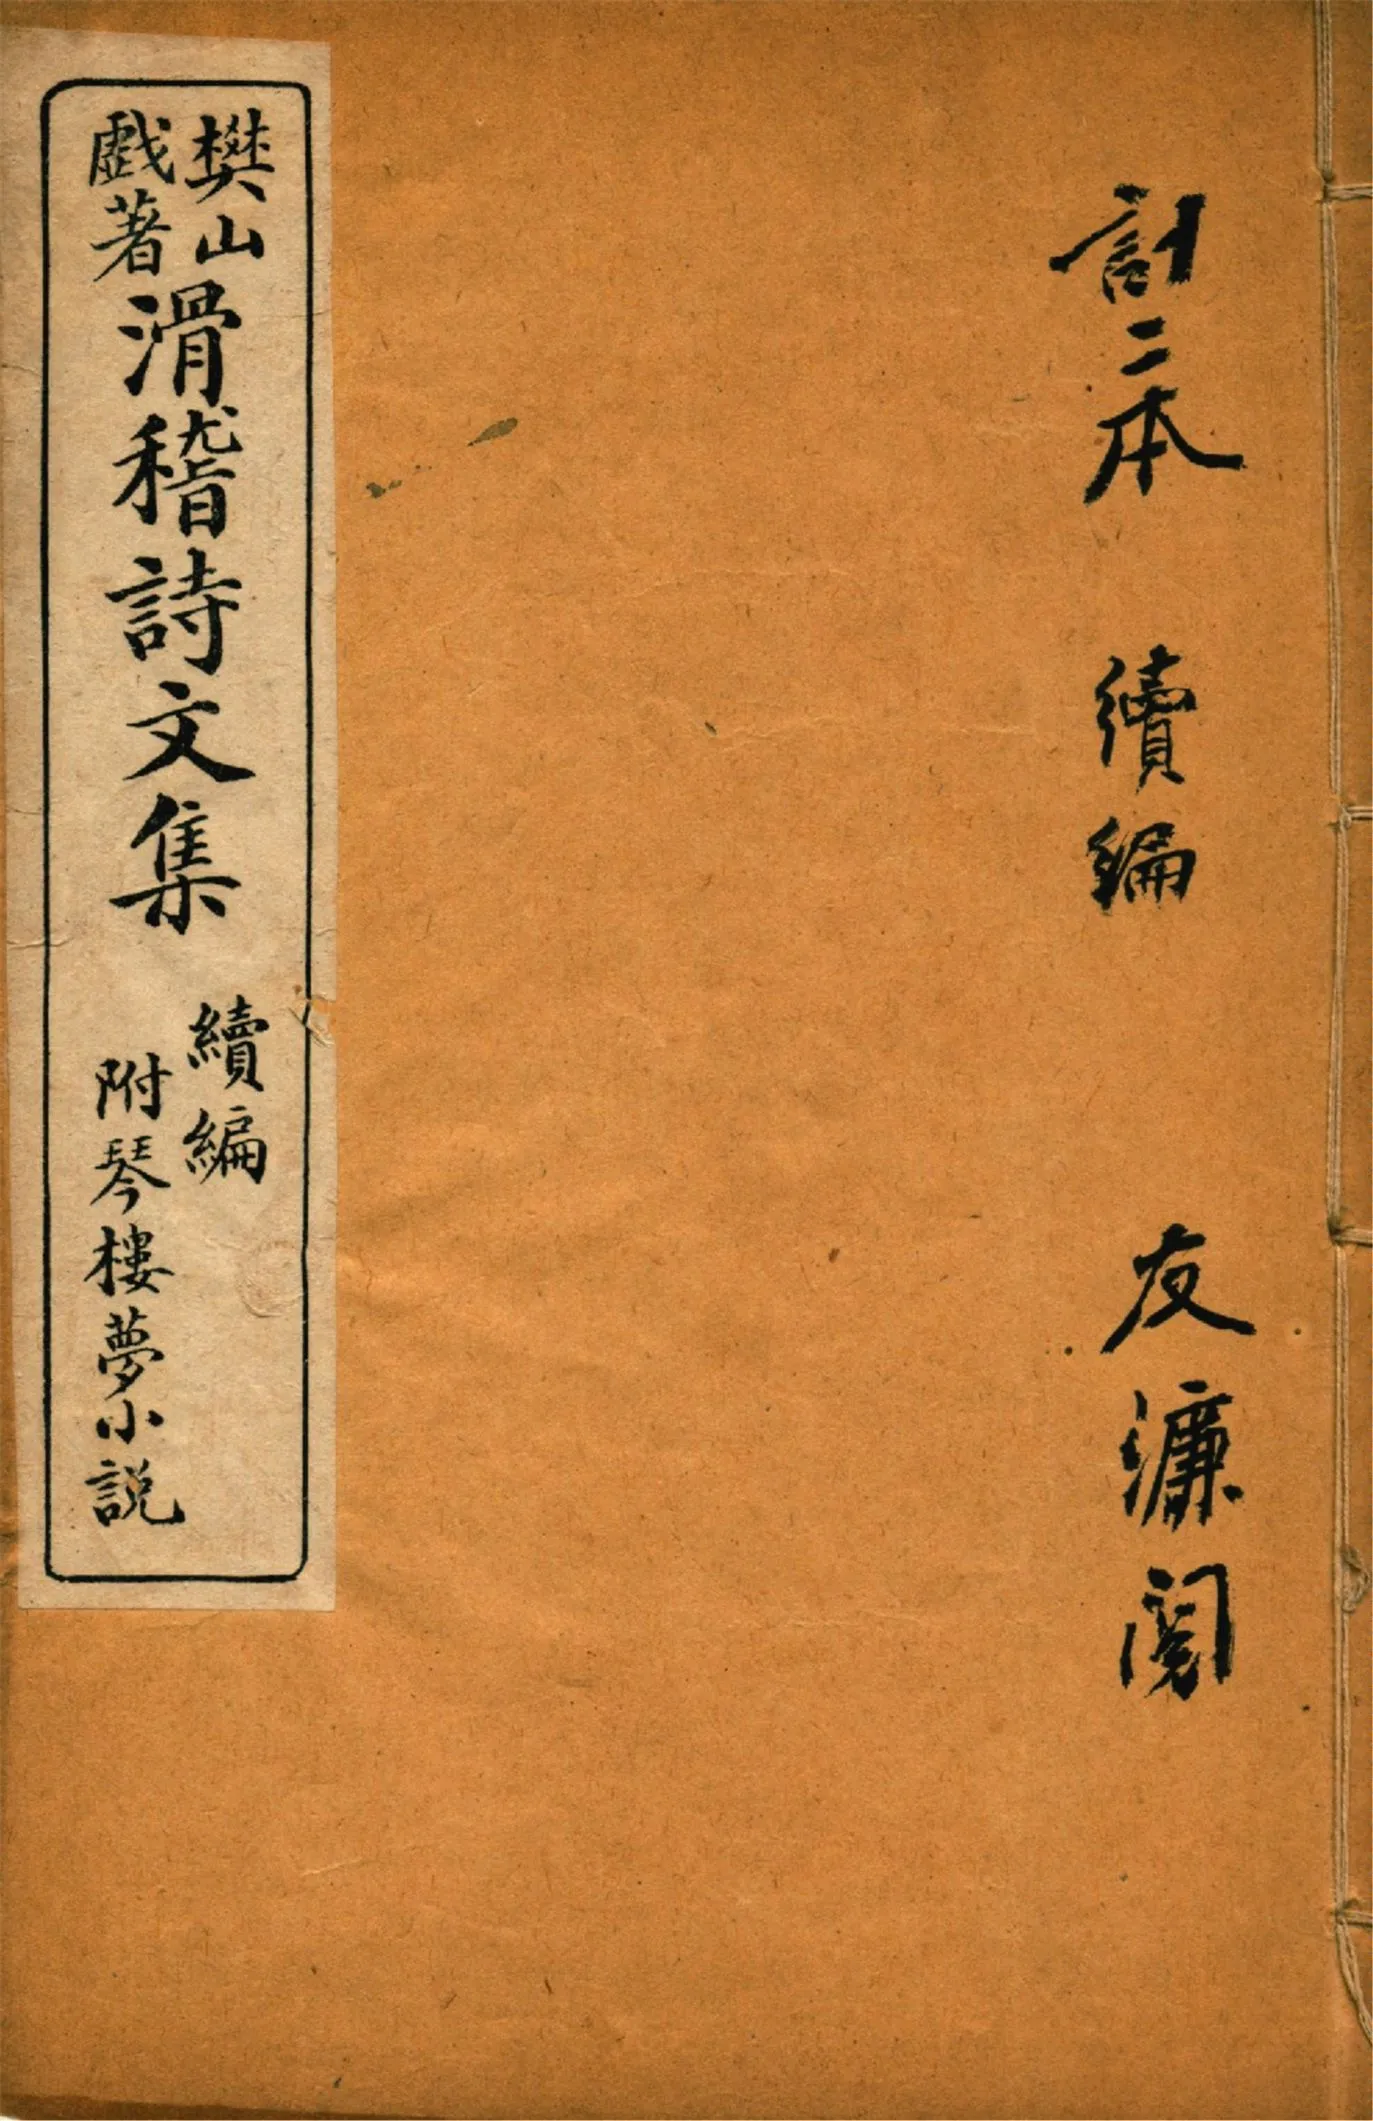 計二本 續編 友濂閱
樊山
戯著
滑稽詩文集
續編
附琴樓夢小説